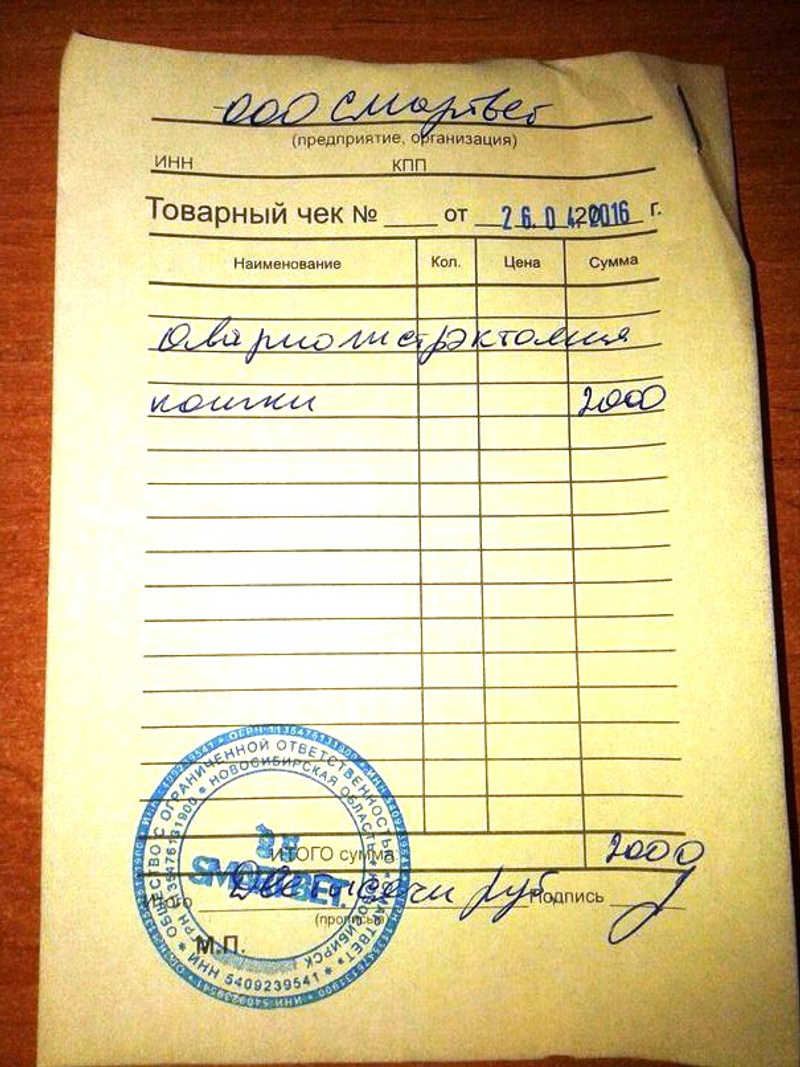 ООО Смартвет
(предприятие, организация)
ИНН КПП
Товарный чек № ____ от 26.04.2016 г.
Наименование Кол. Цена Сумма
Овариогистрэктомия
кошки 2000
ИТОГО сумма 2000
Итого Две тысячи руб. Подпись
(прописью)
М.П.
ОГРН 1135476131900 * ИНН 5409239541
ОБЩЕСТВО С ОГРАНИЧЕННОЙ ОТВЕТСТВЕННОСТЬЮ
НОВОСИБИРСКАЯ ОБЛАСТЬ
ОГРН 1135476131900 * ИНН 5409239541 *